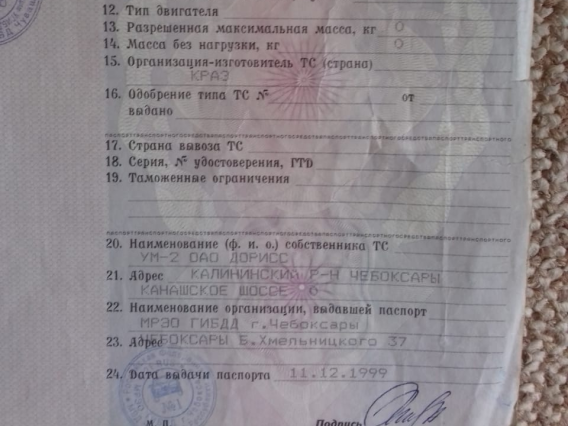 12. Тип двигателя
13. Разрешенная максимальная масса, кг 0
14. Масса без нагрузки, кг 0
15. Организация-изготовитель ТС (страна)
КРАЗ
16. Одобрение типа ТС № от
выдано
17. Страна вывоза ТС
18. Серия, № удостоверения, ГТD
19. Таможенные ограничения
20. Наименование (ф. и. о.) собственника ТС
УМ-2 ОАО ДОРИСС
21. Адрес КАЛИНИНСКИЙ Р-Н ЧЕБОКСАРЫ
КАНАШСКОЕ ШОССЕ 6
22. Наименование организации, выдавшей паспорт
МРЭО ГИБДД г.Чебоксары
23. Адрес ЧЕБОКСАРЫ Б.Хмельницкого 37
24. Dата выдачи паспорта 11.12.1999
М. П. Подпись